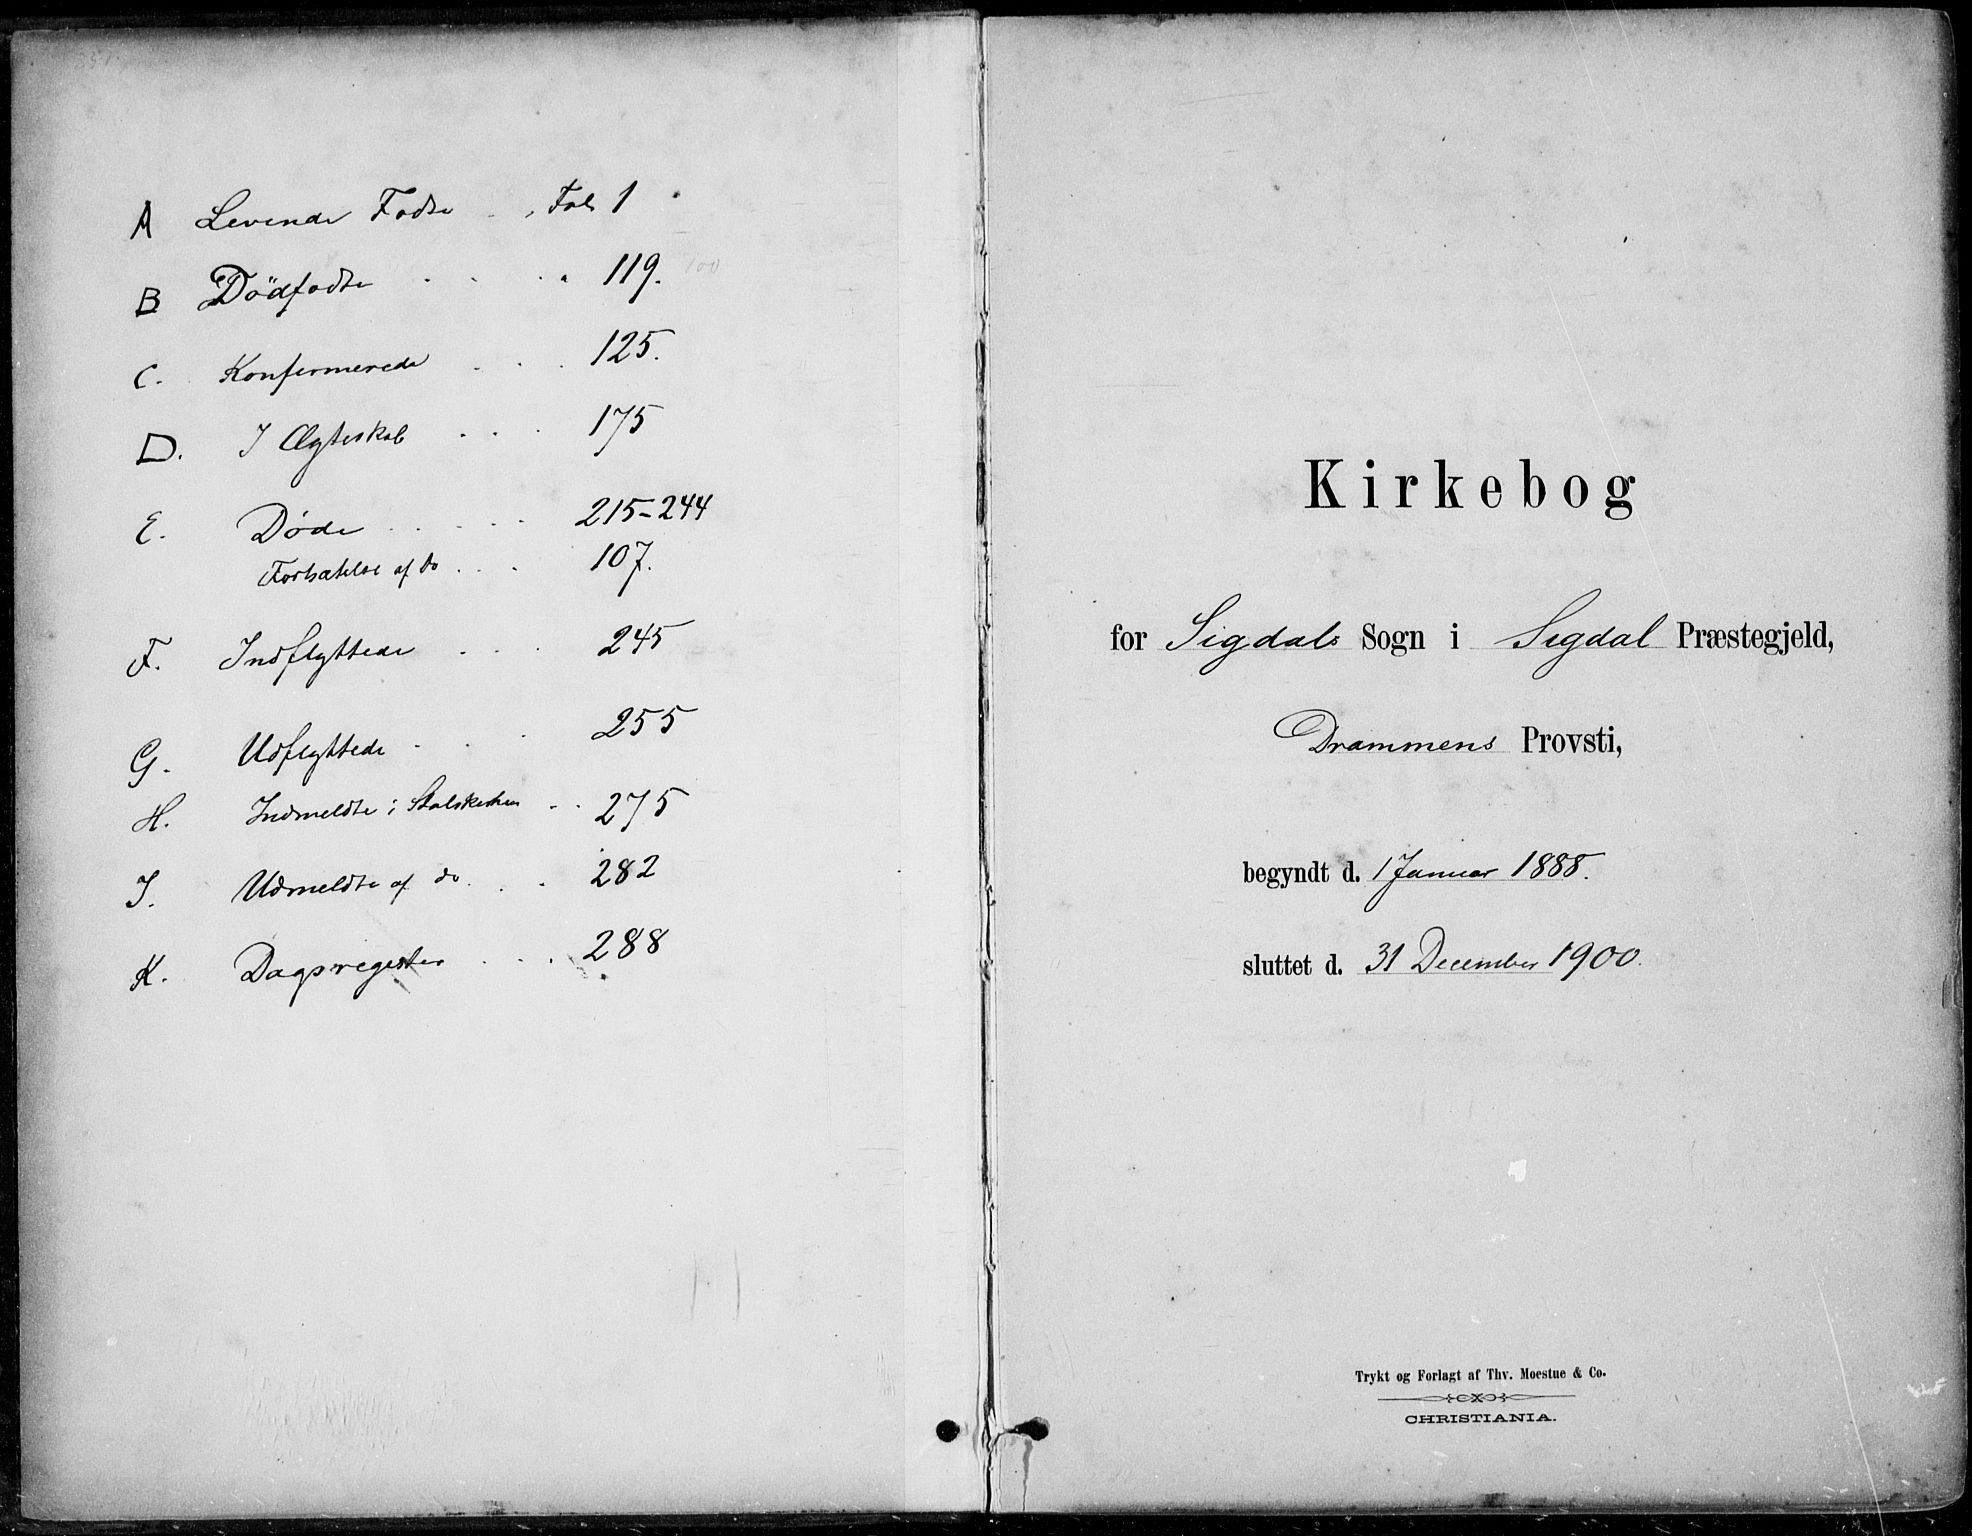 A Levende Fødte . . Fol. 1
B Dødfødte . . . 119. 100
C. Konfirmerede . . . 125.
D. I Ægteskab . . . 175
E. Døde . . . . 215-244
Fortsættelse af do . . . 107.
F. Indflyttede . . . 245
G. Udflyttede . . . 255
H. Indmeldte i Statskirken . . 275
I. Udmeldte af do. . . 282
K. Dagsregister . . . 288
Kirkebog
for Sigdals Sogn i Sigdal Præstegjeld,
Drammens Provsti,
begyndt d. 1 Januar 1888.
sluttet d. 31 December 1900.
Trykt og Forlagt af Thv. Moestue & Co.
CHRISTIANIA.